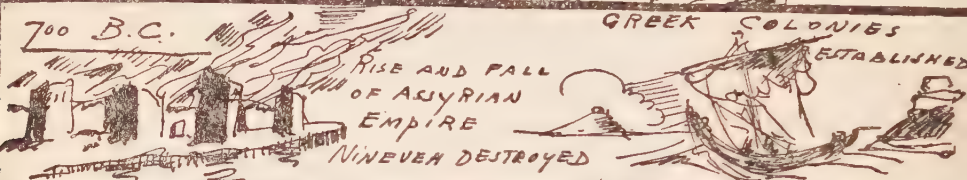 700 B.C.
RISE AND FALL
OF ASSYRIAN
EMPIRE
NINEVEH DESTROYED
GREEK COLONIES
ESTABLISHED